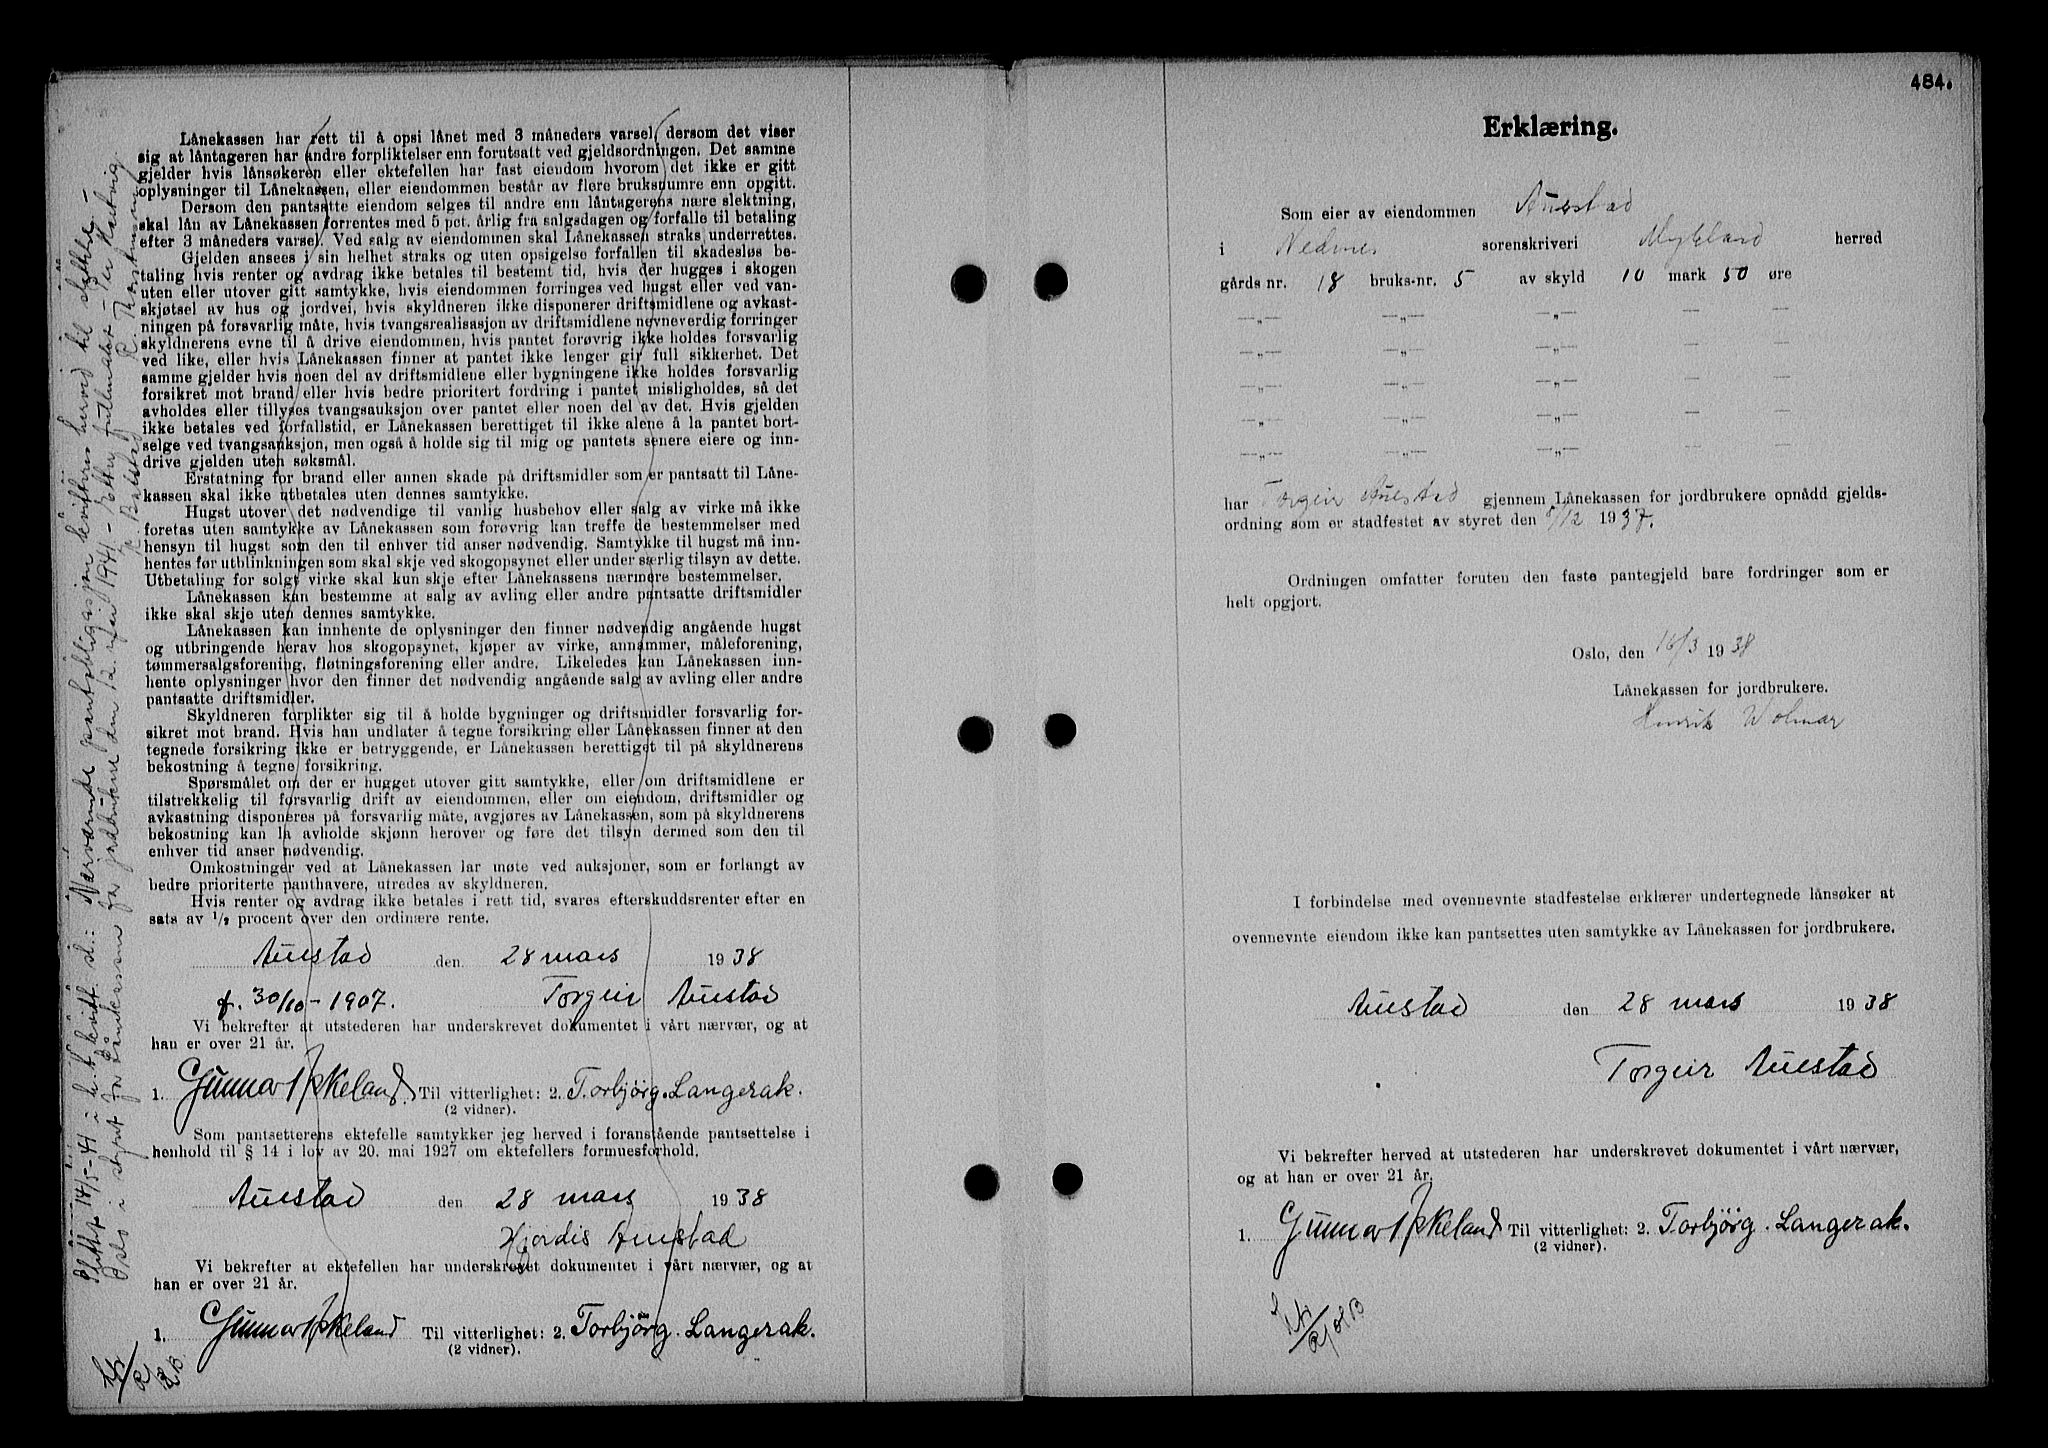 Lånekassen har rett til å opsi lånet med 3 måneders varsel, dersom det viser
sig at låntageren har andre forpliktelser enn forutsatt ved gjeldsordningen. Det samme
gjelder hvis lånsøkeren eller ektefellen har fast eiendom hvorom det ikke er gitt
oplysninger til Lånekassen, eller eiendommen består av flere bruksnumre enn opgitt.
Dersom den pantsatte eiendom selges til andre enn låntagerens nære slektning,
skal lån av Lånekassen forrentes med 5 pct. årlig fra salgsdagen og forfalle til betaling
efter 3 måneders varsel. Ved salg av eiendommen skal Lånekassen straks underrettes.
Gjelden ansees i sin helhet straks og uten opsigelse forfallen til skadesløs be-
taling hvis renter og avdrag ikke betales til bestemt tid, hvis der hugges i skogen
uten eller utover gitt samtykke, hvis eiendommen forringes ved hugst eller ved van-
skjøtsel av hus og jordvei, hvis skyldneren ikke disponerer driftsmidlene og avkast-
ningen på forsvarlig måte, hvis tvangsrealisasjon av driftsmidlene nevneverdig forringer
skyldnerens evne til å drive eiendommen, hvis pantet forøvrig ikke holdes forsvarlig
ved like, eller hvis Lånekassen finner at pantet ikke lenger gir full sikkerhet. Det
samme gjelder hvis noen del av driftsmidlene eller bygningene ikke holdes forsvarlig
forsikret mot brand eller hvis bedre prioritert fordring i pantet misligholdes, så det
avholdes eller tillyses tvangsauksjon over pantet eller noen del av det. Hvis gjelden
ikke betales ved forfallstid, er Lånekassen berettiget til ikke alene å la pantet bort-
selge ved tvangsauksjon, men også å holde sig til mig og pantets senere eiere og inn-
drive gjelden uten søksmål.
Erstatning for brand eller annen skade på driftsmidler som er pantsatt til Låne-
kassen skal ikke utbetales uten dennes samtykke.
Hugst utover det nødvendige til vanlig husbehov eller salg av virke må ikke
foretas uten samtykke av Lånekassen som forøvrig kan treffe de bestemmelser med
hensyn til hugst som den til enhver tid anser nødvendig. Samtykke til hugst må inn-
hentes før utblinkningen som skal skje ved skogopsynet eller under særlig tilsyn av dette.
Utbetaling for solgt virke skal kun skje efter Lånekassens nærmere bestemmelser.
Lånekassen kan bestemme at salg av avling eller andre pantsatte driftsmidler
ikke skal skje uten dennes samtykke.
Lånekassen kan innhente de oplysninger den finner nødvendig angående hugst
og utbringende herav hos skogopsynet, kjøper av virke, annammer, måleforening,
tømmersalgsforening, fløtningsforening eller andre. Likeledes kan Lånekassen inn-
hente oplysninger hvor den finner det nødvendig angående salg av avling eller andre
pantsatte driftsmidler.
Skyldneren forplikter sig til å holde bygninger og driftsmidler forsvarlig for-
sikret mot brand. Hvis han undlater å tegne forsikring eller Lånekassen finner at den
tegnede forsikring ikke er betryggende, er Lånekassen berettiget til på skyldnerens
bekostning å tegne forsikring.
Spørsmålet om der er hugget utover gitt samtykke, eller om driftsmidlene er
tilstrekkelig til forsvarlig drift av eiendommen, eller om eiendom, driftsmidler og
avkastning disponeres på forsvarlig måte, avgjøres av Lånekassen, som på skyldnerens
bekostning kan la avholde skjønn herover og føre det tilsyn dermed som den til
enhver tid anser nødvendig.
Omkostninger ved at Lånekassen lar møte ved auksjoner, som er forlangt av
bedre prioriterte panthavere, utredes av skyldneren.
Hvis renter og avdrag ikke betales i rett tid, svares efterskuddsrenter efter en
sats av 1/2 procent over den ordinære rente.
Auestad den 28 mars 1938
f. 30/10 - 1907. Torgeir Auestad
Vi bekrefter at utstederen har underskrevet dokumentet i vårt nærvær, og at
han er over 21 år.
1. Gunnar Ipkeland Til vitterlighet: 2. Torbjörg. Langerak.
(2 vidner).
Som pantsetterens ektefelle samtykker jeg herved i foranstående pantsettelse i
henhold til § 14 i lov av 20. mai 1927 om ektefellers formuesforhold.
Auestad den 28 mars 1938
Hjordis Auestad
Vi bekrefter at ektefellen har underskrevet dokumentet i vårt nærvær, og at
han er over 21 år.
1. Gunnar Ipkeland Til vitterlighet: 2. Torbjörg. Langerak.
(2 vidner).
Slettet 14/5-41 i h. t. kvitt. sl.: Nærværende pantobligasjon kvitteres herved til slettelse. -
Oslo i styret for Lånekassen for jordbrukere den 12. mai 1941 - Efter fullmakt - Per Hartvig
R. Thorstensen
484.
Erklæring.
Som eier av eiendommen Auestad
i Nedenes sorenskriveri Mykland herred
gårds nr. 18 bruks-nr. 5 av skyld 10 mark 50 øre
—„— —„— —„— — —
—„— —„— —„— — —
—„— —„— —„— — —
—„— —„— —„— — —
—„— —„— —„— — —
har Torgeir Auestad gjennem Lånekassen for jordbrukere opnådd gjelds-
ordning som er stadfestet av styret den 8/12 1937.
Ordningen omfatter foruten den faste pantegjeld bare fordringer som er
helt opgjort.
Oslo, den 16/3 1938
Lånekassen for jordbrukere.
Henrik Wolmar
I forbindelse med ovennevnte stadfestelse erklærer undertegnede lånsøker at
ovennevnte eiendom ikke kan pantsettes uten samtykke av Lånekassen for jordbrukere.
Auestad den 28 mars 1938
Torgeir Auestad
Vi bekrefter herved at utstederen har underskrevet dokumentet i vårt nærvær,
og at han er over 21 år.
1. Gunnar Ipkeland Til vitterlighet: 2. Torbjörg. Langerak.
(2 vidner).